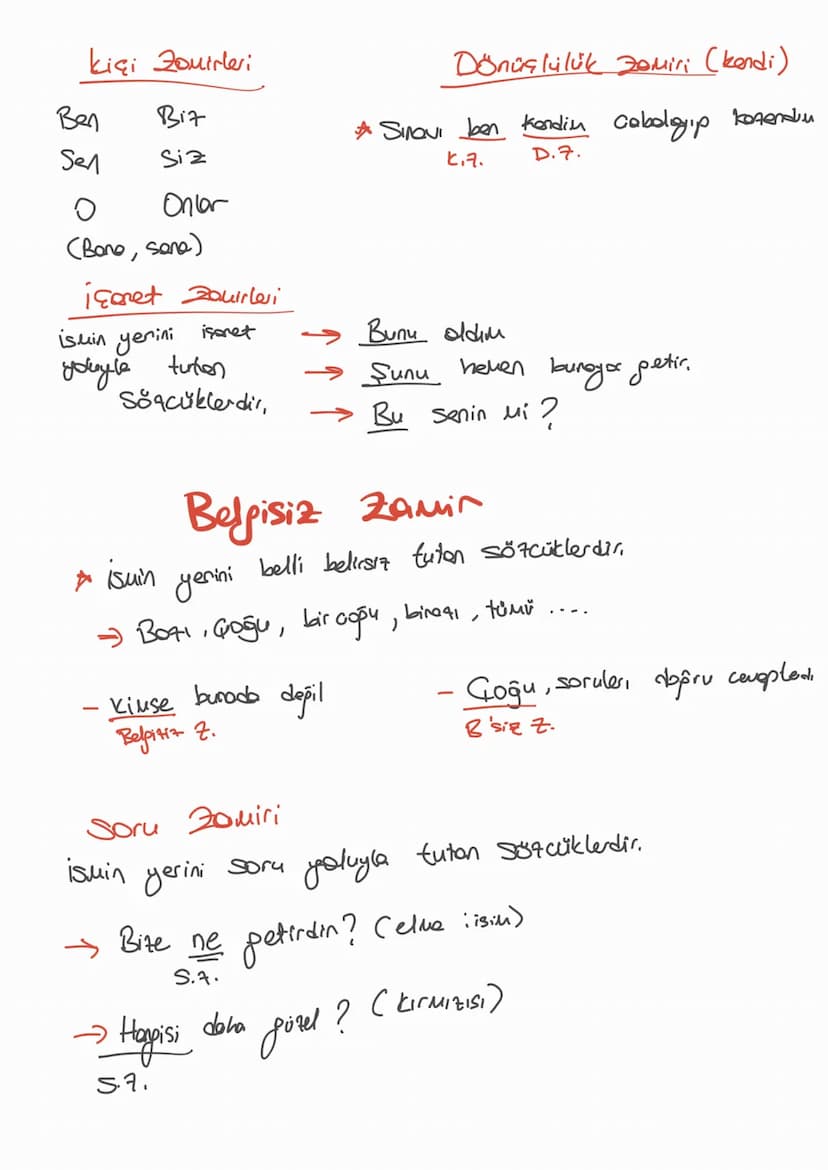 Kişi Zamirleri
Ben Biz
Sen Siz
O Onlar
(Bana, sana)
Dönüşlülük zamiri (kendi)
★ Sınavı ben kendim çabalayıp kazandım
K.Z. D.Z.
İşaret Zamirleri
ismin yerini işaret
yoluyla tutan
sözcüklerdir.
→ Bunu aldım
→ Şunu hemen buraya getir.
→ Bu senin mi?
Belgisiz Zamir
★ İsmin yerini belli belirsiz tutan sözcüklerdir.
→ Bazı, Çoğu, bir çoğu, birazı, tümü ....
- Kimse burada değil
Belgisiz Z.
- Çoğu, soruları doğru cevapladı
B'siz Z.
Soru Zamiri
ismin yerini soru yoluyla tutan sözcüklerdir.
→ Bize ne getirdin? (elma : isim)
S.Z.
→ Hangisi daha güzel? (kırmızısı)
S.Z.